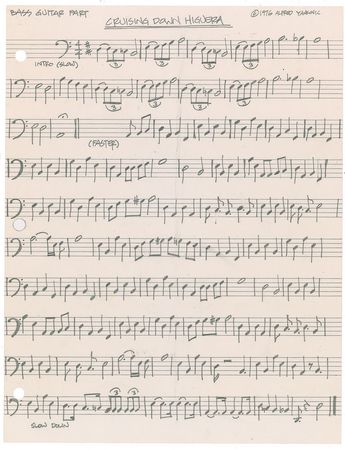 BASS GUITAR PART
CRUISING DOWN HIGUERA
© 1976 ALFRED
INTRO (SLOW)
3 3 3
3 3 3
(FASTER)
3 3
SLOW DOWN